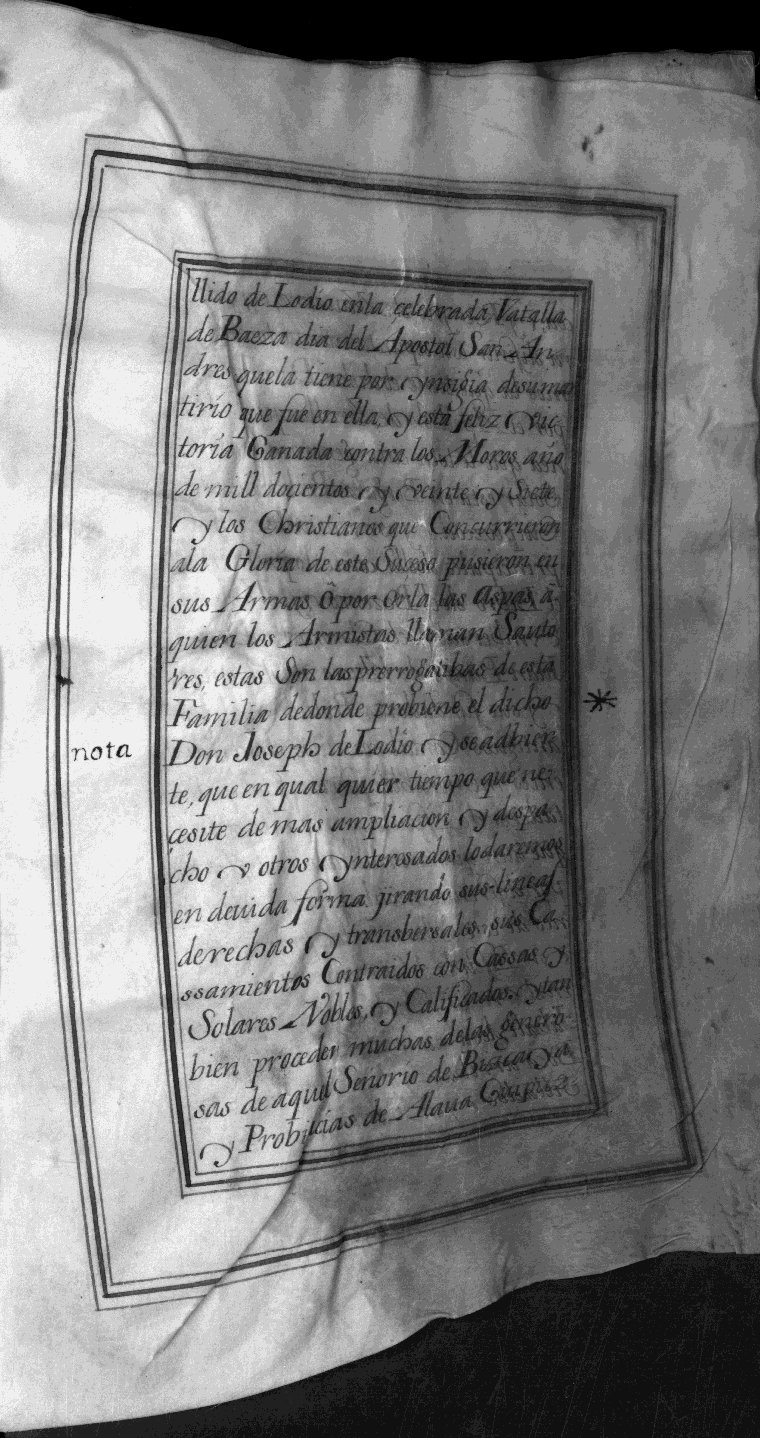 llido de Lodio enla celebrada Vatalla
de Baeza dia del Apostol San An
dres quela tiene por ynsignia desumar
tirio que fue en ella, y esta feliz vic
toria Ganada contra los Moros año
de mill docientos y veinte y Siete,
y los Christianos que Concurrieron
ala Gloria de este Suceso pusieron en
sus Armas ô por Orla las aspas â
quien los Armistas llaman Sauto
res, estas Son las prerrogatibas de esta
Familia dedonde probiene el dicho
nota
Don Joseph de Lodio y se adbier
te, que en qual quier tiempo que ne
cesite de mas ampliacion y despa
cho v otros ynteresados lo daremos
en deuida forma jirando sus lineas
derechas y transbersales, sus Ca
ssamientos Contraidos con Cassas y
Solares Nobles, y Calificados, y tan
bien proceder muchas delas genero
sas de aquel Señorio de Bizcaya
y Probincias de Alaua